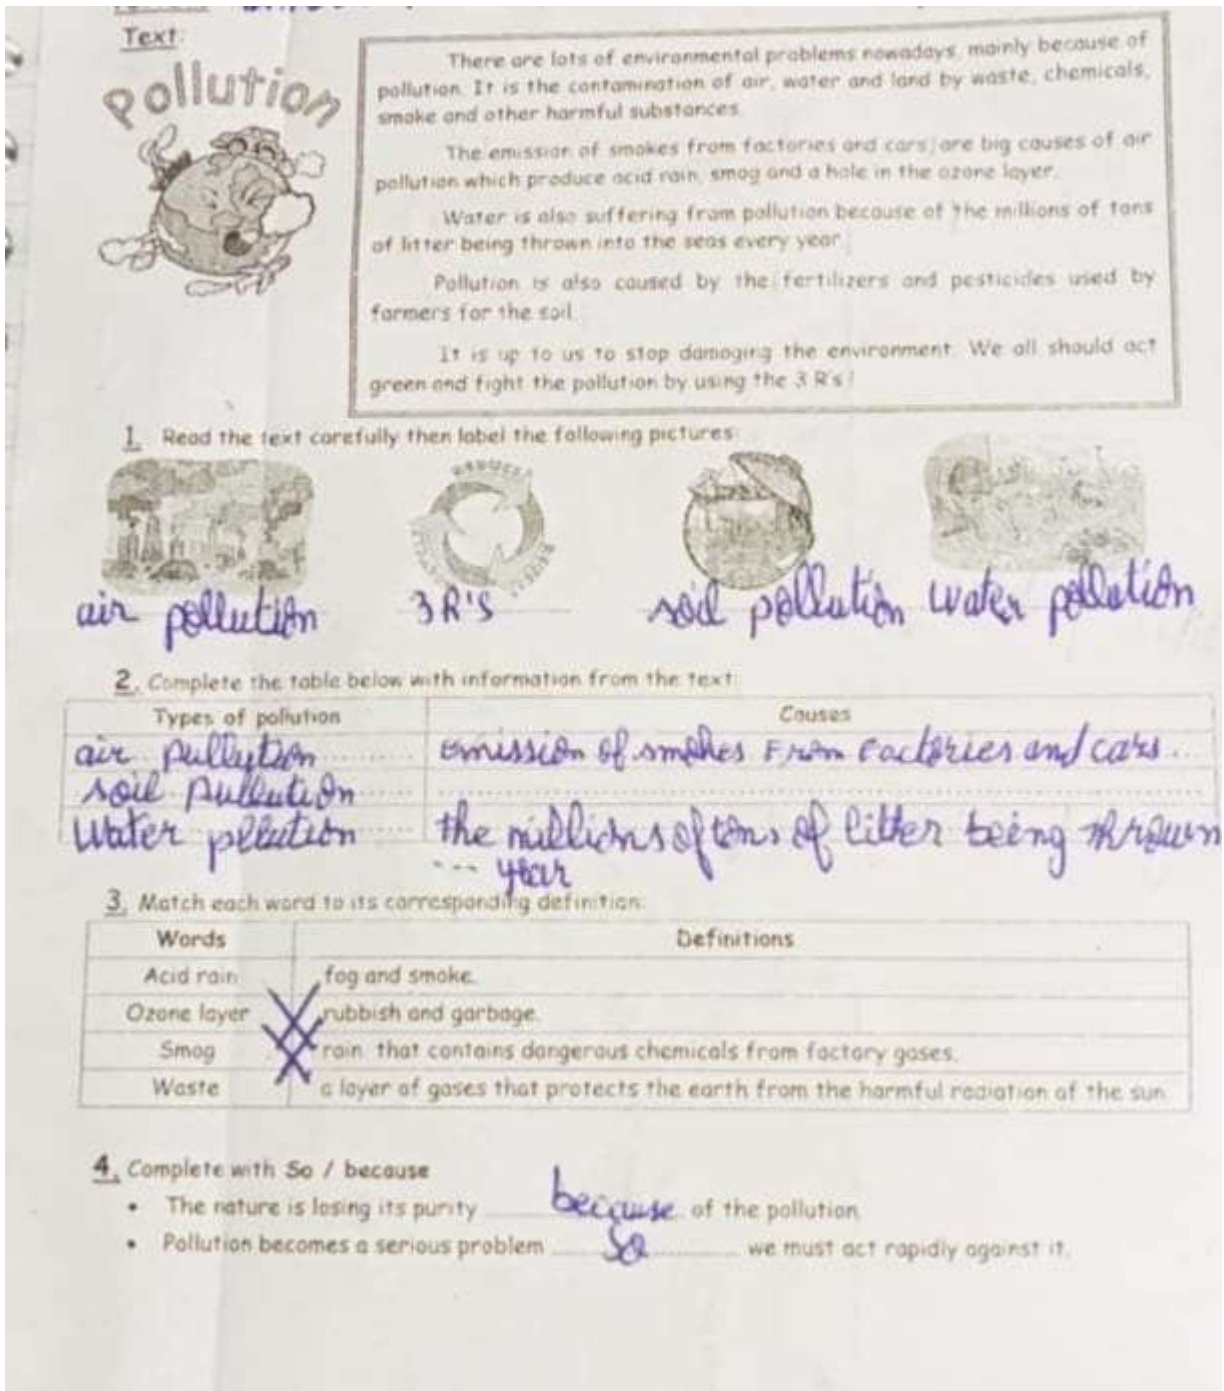 Text:
Pollution
There are lots of environmental problems nowadays, mainly because of
pollution. It is the contamination of air, water and land by waste, chemicals,
smoke and other harmful substances.
The emission of smokes from factories and cars, are big causes of air
pollution which produce acid rain, smog and a hole in the ozone layer.
Water is also suffering from pollution because of the millions of tons
of litter being thrown into the seas every year.
Pollution is also caused by the fertilizers and pesticides used by
farmers for the soil.
It is up to us to stop damaging the environment. We all should act
green and fight the pollution by using the 3 R's!
1. Read the text carefully then label the following pictures:
air pollution 3R'S soil pollution water pollution
2. Complete the table below with information from the text:
Types of pollution Causes
air pullution Emission of smokes From Factories and cars
soil pullution
Water pllution the millions of tons of litter being thrown
--- year
3. Match each word to its corresponding definition:
Words Definitions
Acid rain fog and smoke.
Ozone layer rubbish and garbage.
Smog rain that contains dangerous chemicals from factory gases.
Waste a layer of gases that protects the earth from the harmful radiation of the sun
4. Complete with So / because
• The nature is losing its purity because of the pollution
• Pollution becomes a serious problem So we must act rapidly against it.